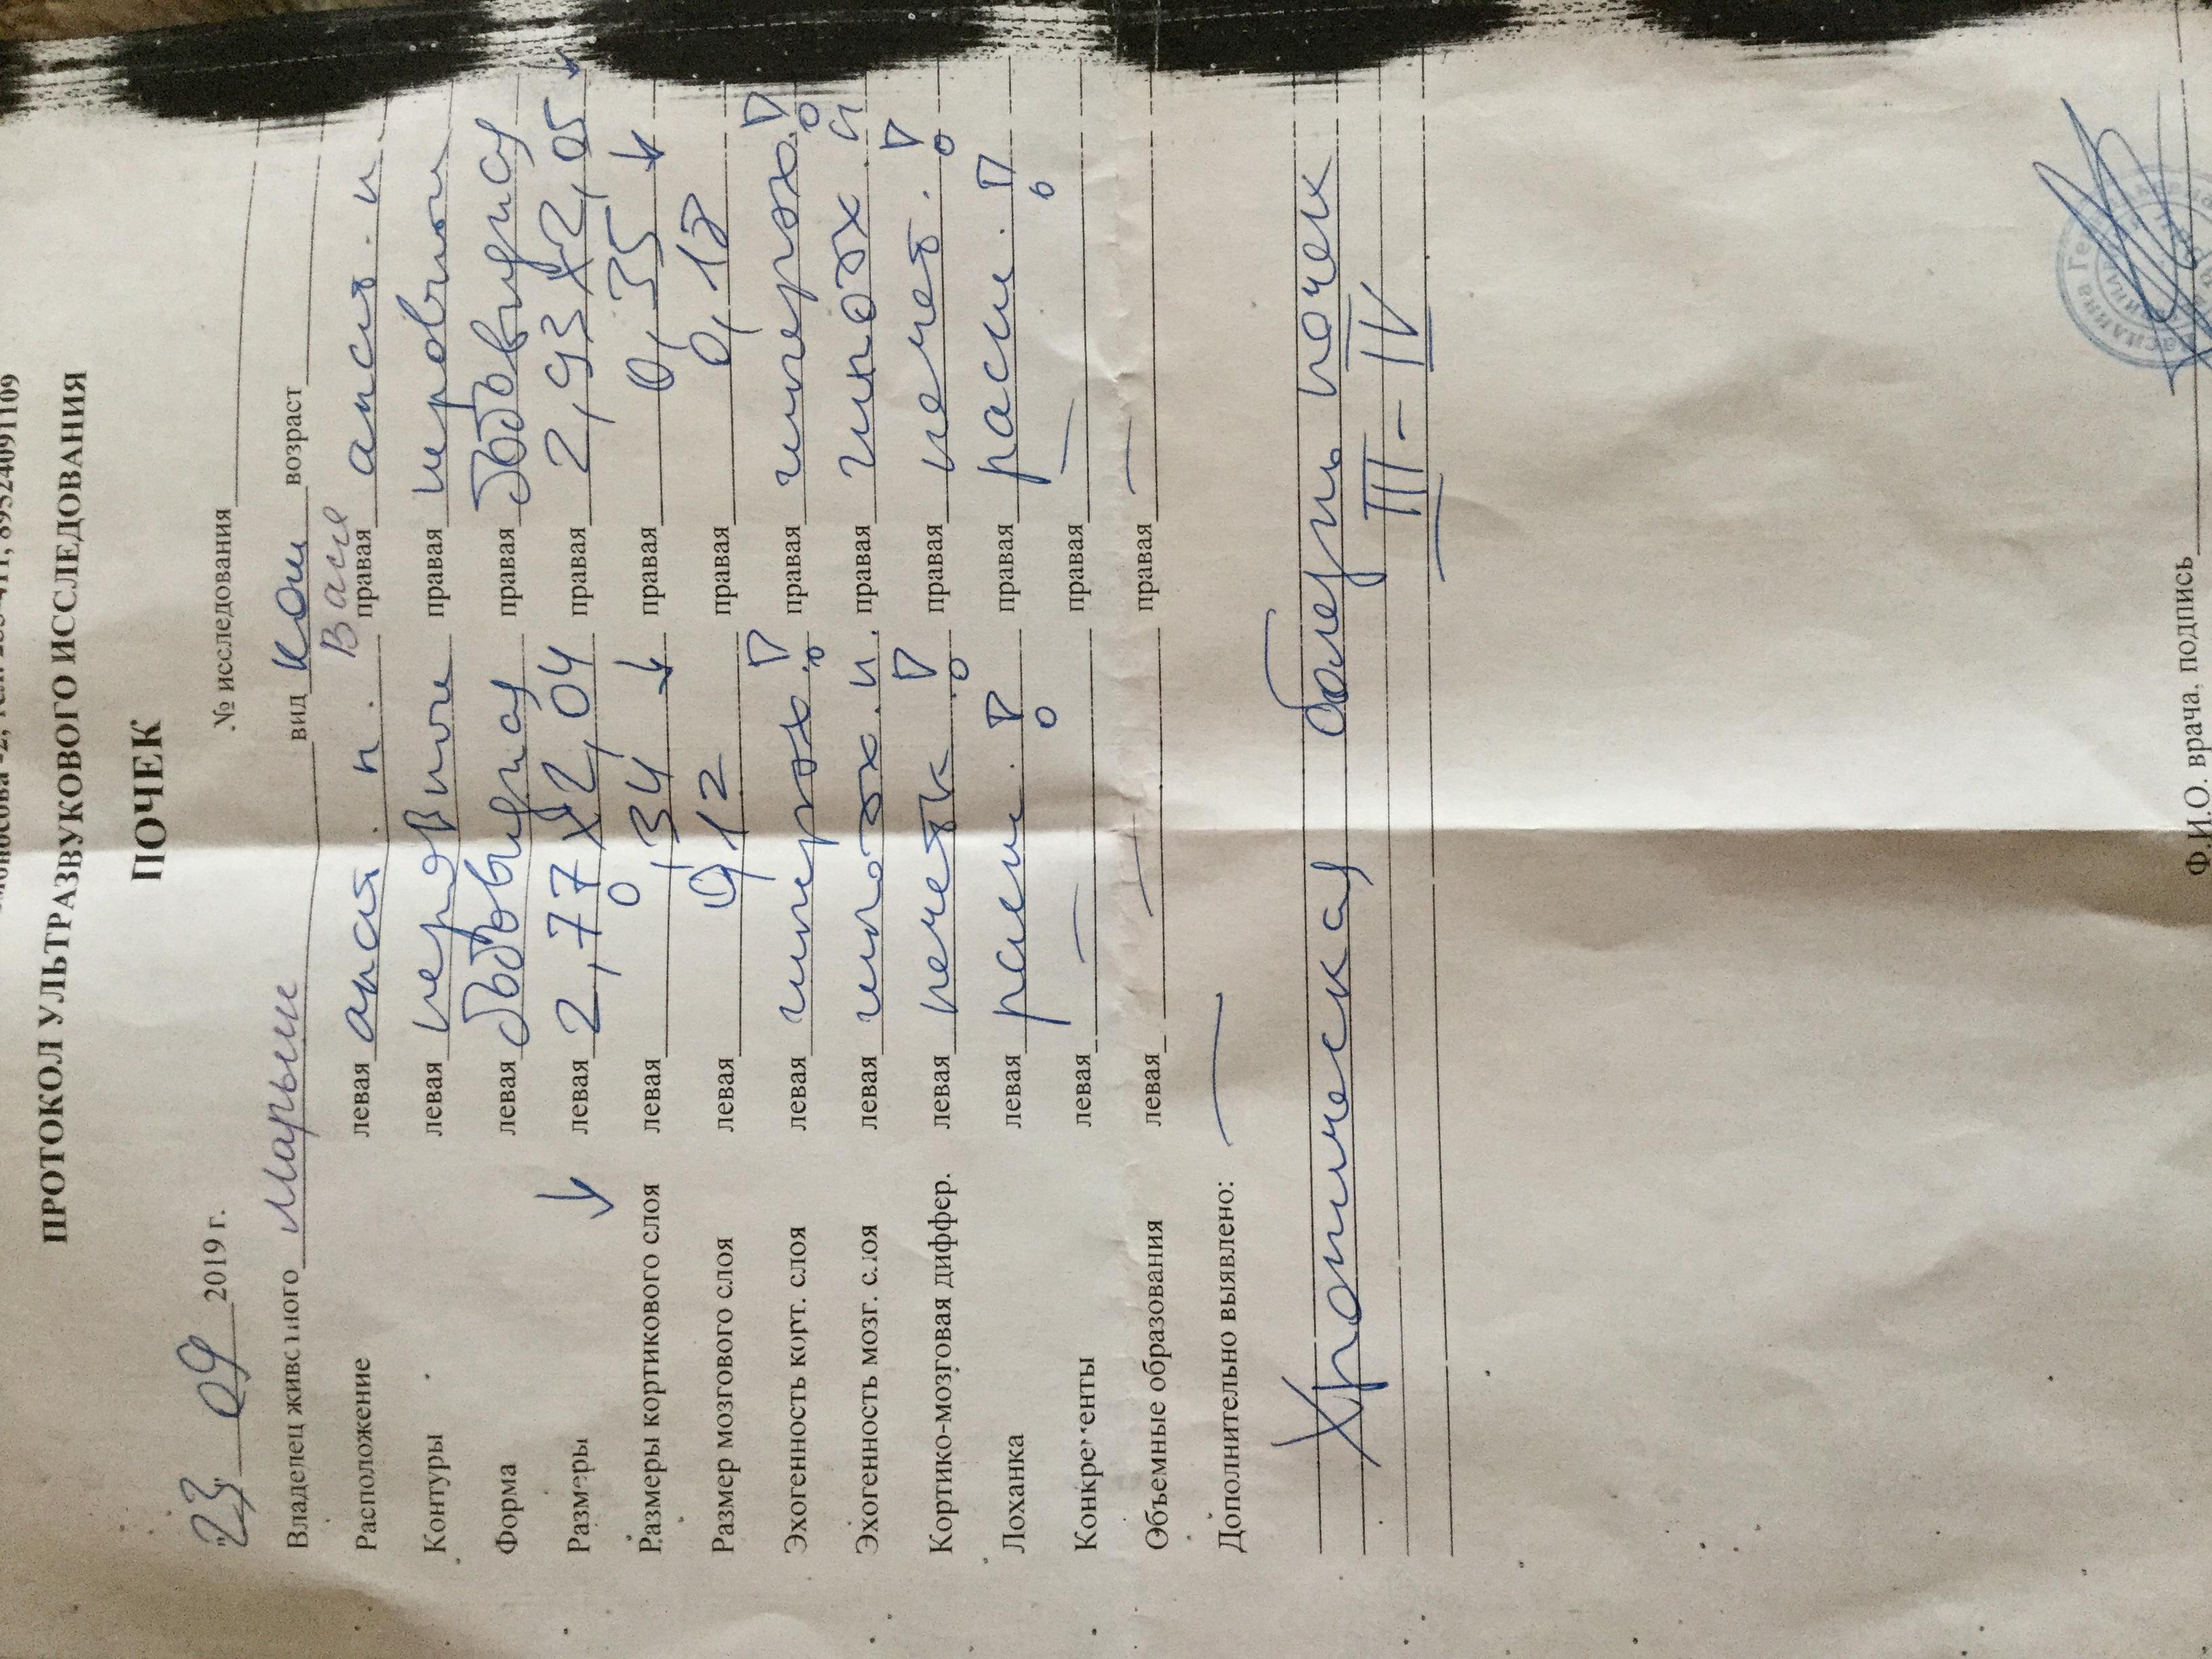 2, тел. 89524091109
ПРОТОКОЛ УЛЬТРАЗВУКОВОГО ИССЛЕДОВАНИЯ
ПОЧЕК
23 09 2019 г. № исследования
Владелец животного вид кош возраст
Вася
Расположение левая анат. п. правая анат. п
Контуры левая неровные правая неровные
Форма левая бобовидная правая бобовидная
Размеры ↓ левая 2,77 х 2,04 правая 2,93 х 2,05 ↓
Размеры кортикового слоя левая 0,34 ↓ правая 0,35 ↓
Размер мозгового слоя левая 0,12 правая 0,18
Эхогенность корт. слоя левая гиперэх.! правая гиперэх.!
Эхогенность мозг. слоя левая гипоэх. правая гипоэх.
Кортико-мозговая диффер. левая нечетк.! правая нечет.!
Лоханка левая расш.! правая расш.!
Конкременты левая — правая —
Объемные образования левая — правая —
Дополнительно выявлено: —
Хроническая болезнь почек
III - IV
Ф.И.О. врача, подпись